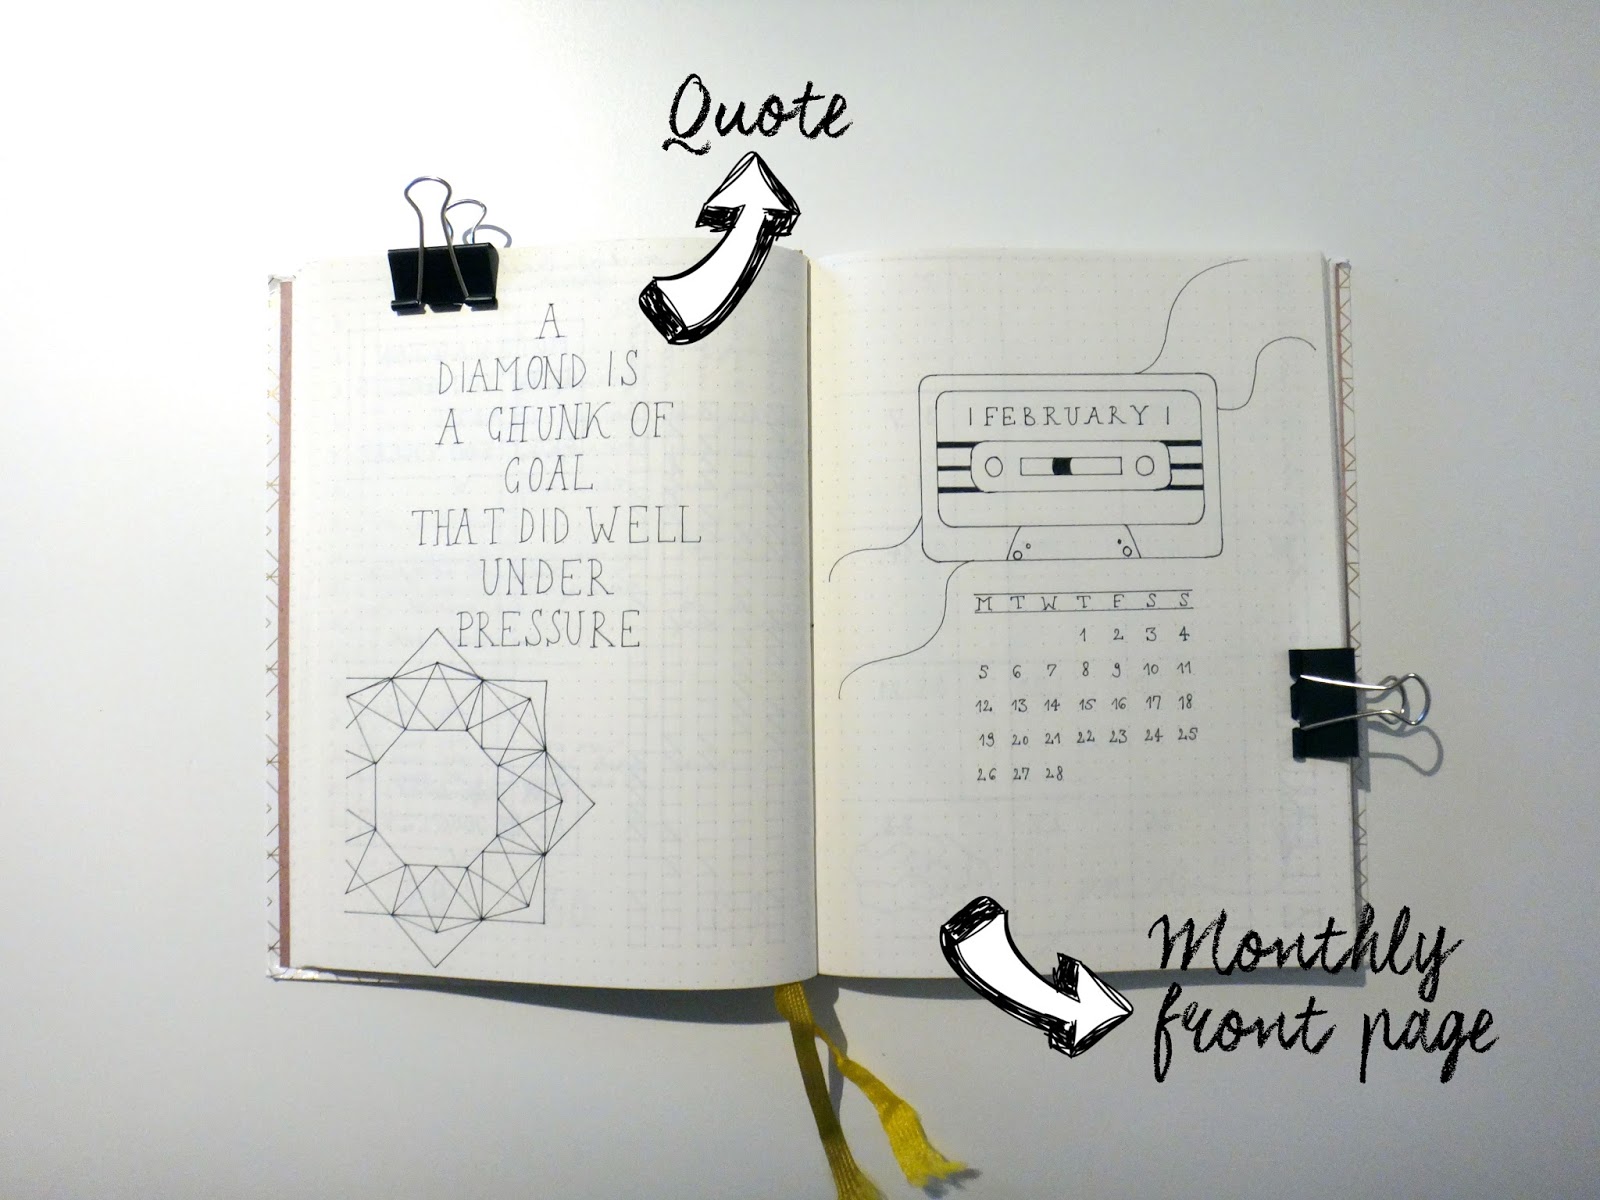 Quote
A
DIAMOND IS
A CHUNK OF
COAL
THAT DID WELL
UNDER
PRESSURE
| FEBRUARY |
M T W T F S S
1 2 3 4
5 6 7 8 9 10 11
12 13 14 15 16 17 18
19 20 21 22 23 24 25
26 27 28
Monthly
front page